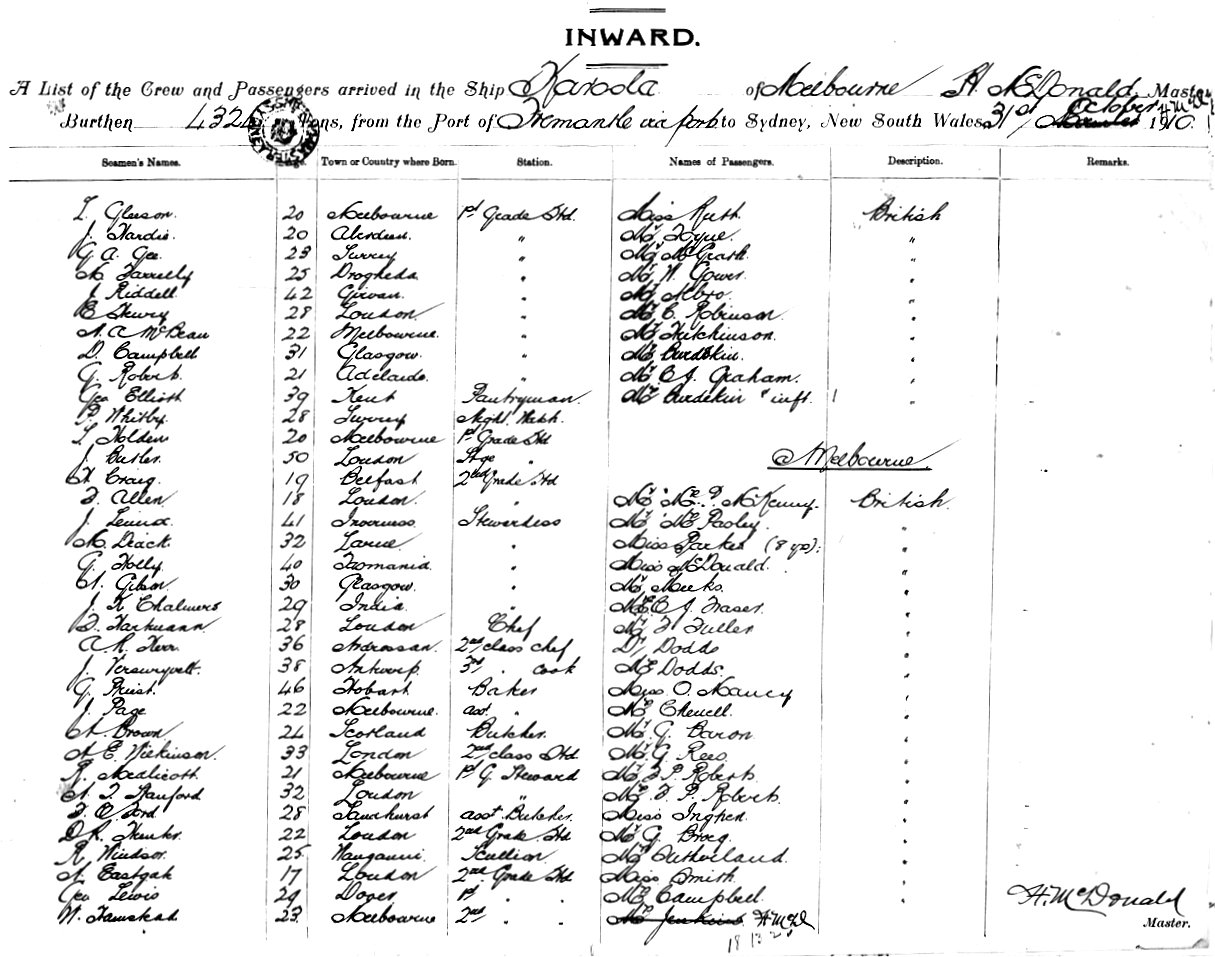 INWARD.
A List of the Crew and Passengers arrived in the Ship Karoola of Melbourne H. McDonald Master
Burthen Tons, from the Port of Fremantle via ports to Sydney, New South Wales 31st October H.McD 1910.
Seamen's Names. Town or Country where Born. Station. Names of Passengers. Description. Remarks.
T. Gleeson. 20 Melbourne 1st Grade Std. Miss Ruth. British
J. Hardie. 20 Aberdeen. " Mr "
G. A. Gee. 23 Surrey " Mr McGrath "
M. Farrelly 25 Drogheda " Mr W. Gower "
J. Riddell 42 Girvan. " "
E Henry 28 London " Mr C. Robinson "
A. McBean 22 Melbourne. " Mr Hutchinson. "
D. Campbell 31 Glasgow. " Burdekin. "
G. Roberts. 21 Adelaide. " Graham. "
Geo Elliott 39 Kent Pantryman. Burdekin & inft. 1
P. Whitby. 28 Surrey Night Watch.
T. Holden 20 Melbourne 1st Grade Std
J. Butler. 50 London " @ Melbourne.
H. Craig. 19 Belfast 2nd Grade Std
F. Allen 18 London. " Mr Mrs British
J. 41 Inverness Stewardess Mr "
M. 32 Larne. " Miss Parker (8 yrs). "
G. Holly 40 Tasmania. " Miss McDonald. "
Gibson. 30 Glasgow. " Meeks. "
J. K Chalmers 29 India. " Fraser. "
F. Hartmann 28 London Chef Mr F Fuller "
A. R. Kerr 36 Ardrossan. 2nd class chef Dr Dodds "
J. 38 Antwerp. 3rd " cook Mrs Dodds. "
G. Priest. 46 Hobart Baker Miss O. Nancy "
J. Page 22 Melbourne. asst. " "
H. Brown. 24 Scotland Butcher. Mr G. Baron "
A E. Wilkinson. 33 London 2nd class Std Mr G. Rees "
R. Medlicott 21 Melbourne 1st G. Steward Mr F. P. Roberts. "
32 London " Mrs F. P. Roberts. "
F. O Ford 28 Sandhurst asst. Butcher. Miss Inghen "
D. R. 22 London 2nd Grade Std Mr G. "
R. Windsor. 25 Wanganui. Scullion Sutherland. "
17 London 2nd Grade Std Miss Smith. "
Geo Lewis 29 Dover 1st " " Campbell. " H. McDonald
W. 23 Melbourne 2nd " " Jenkins H McD Master.